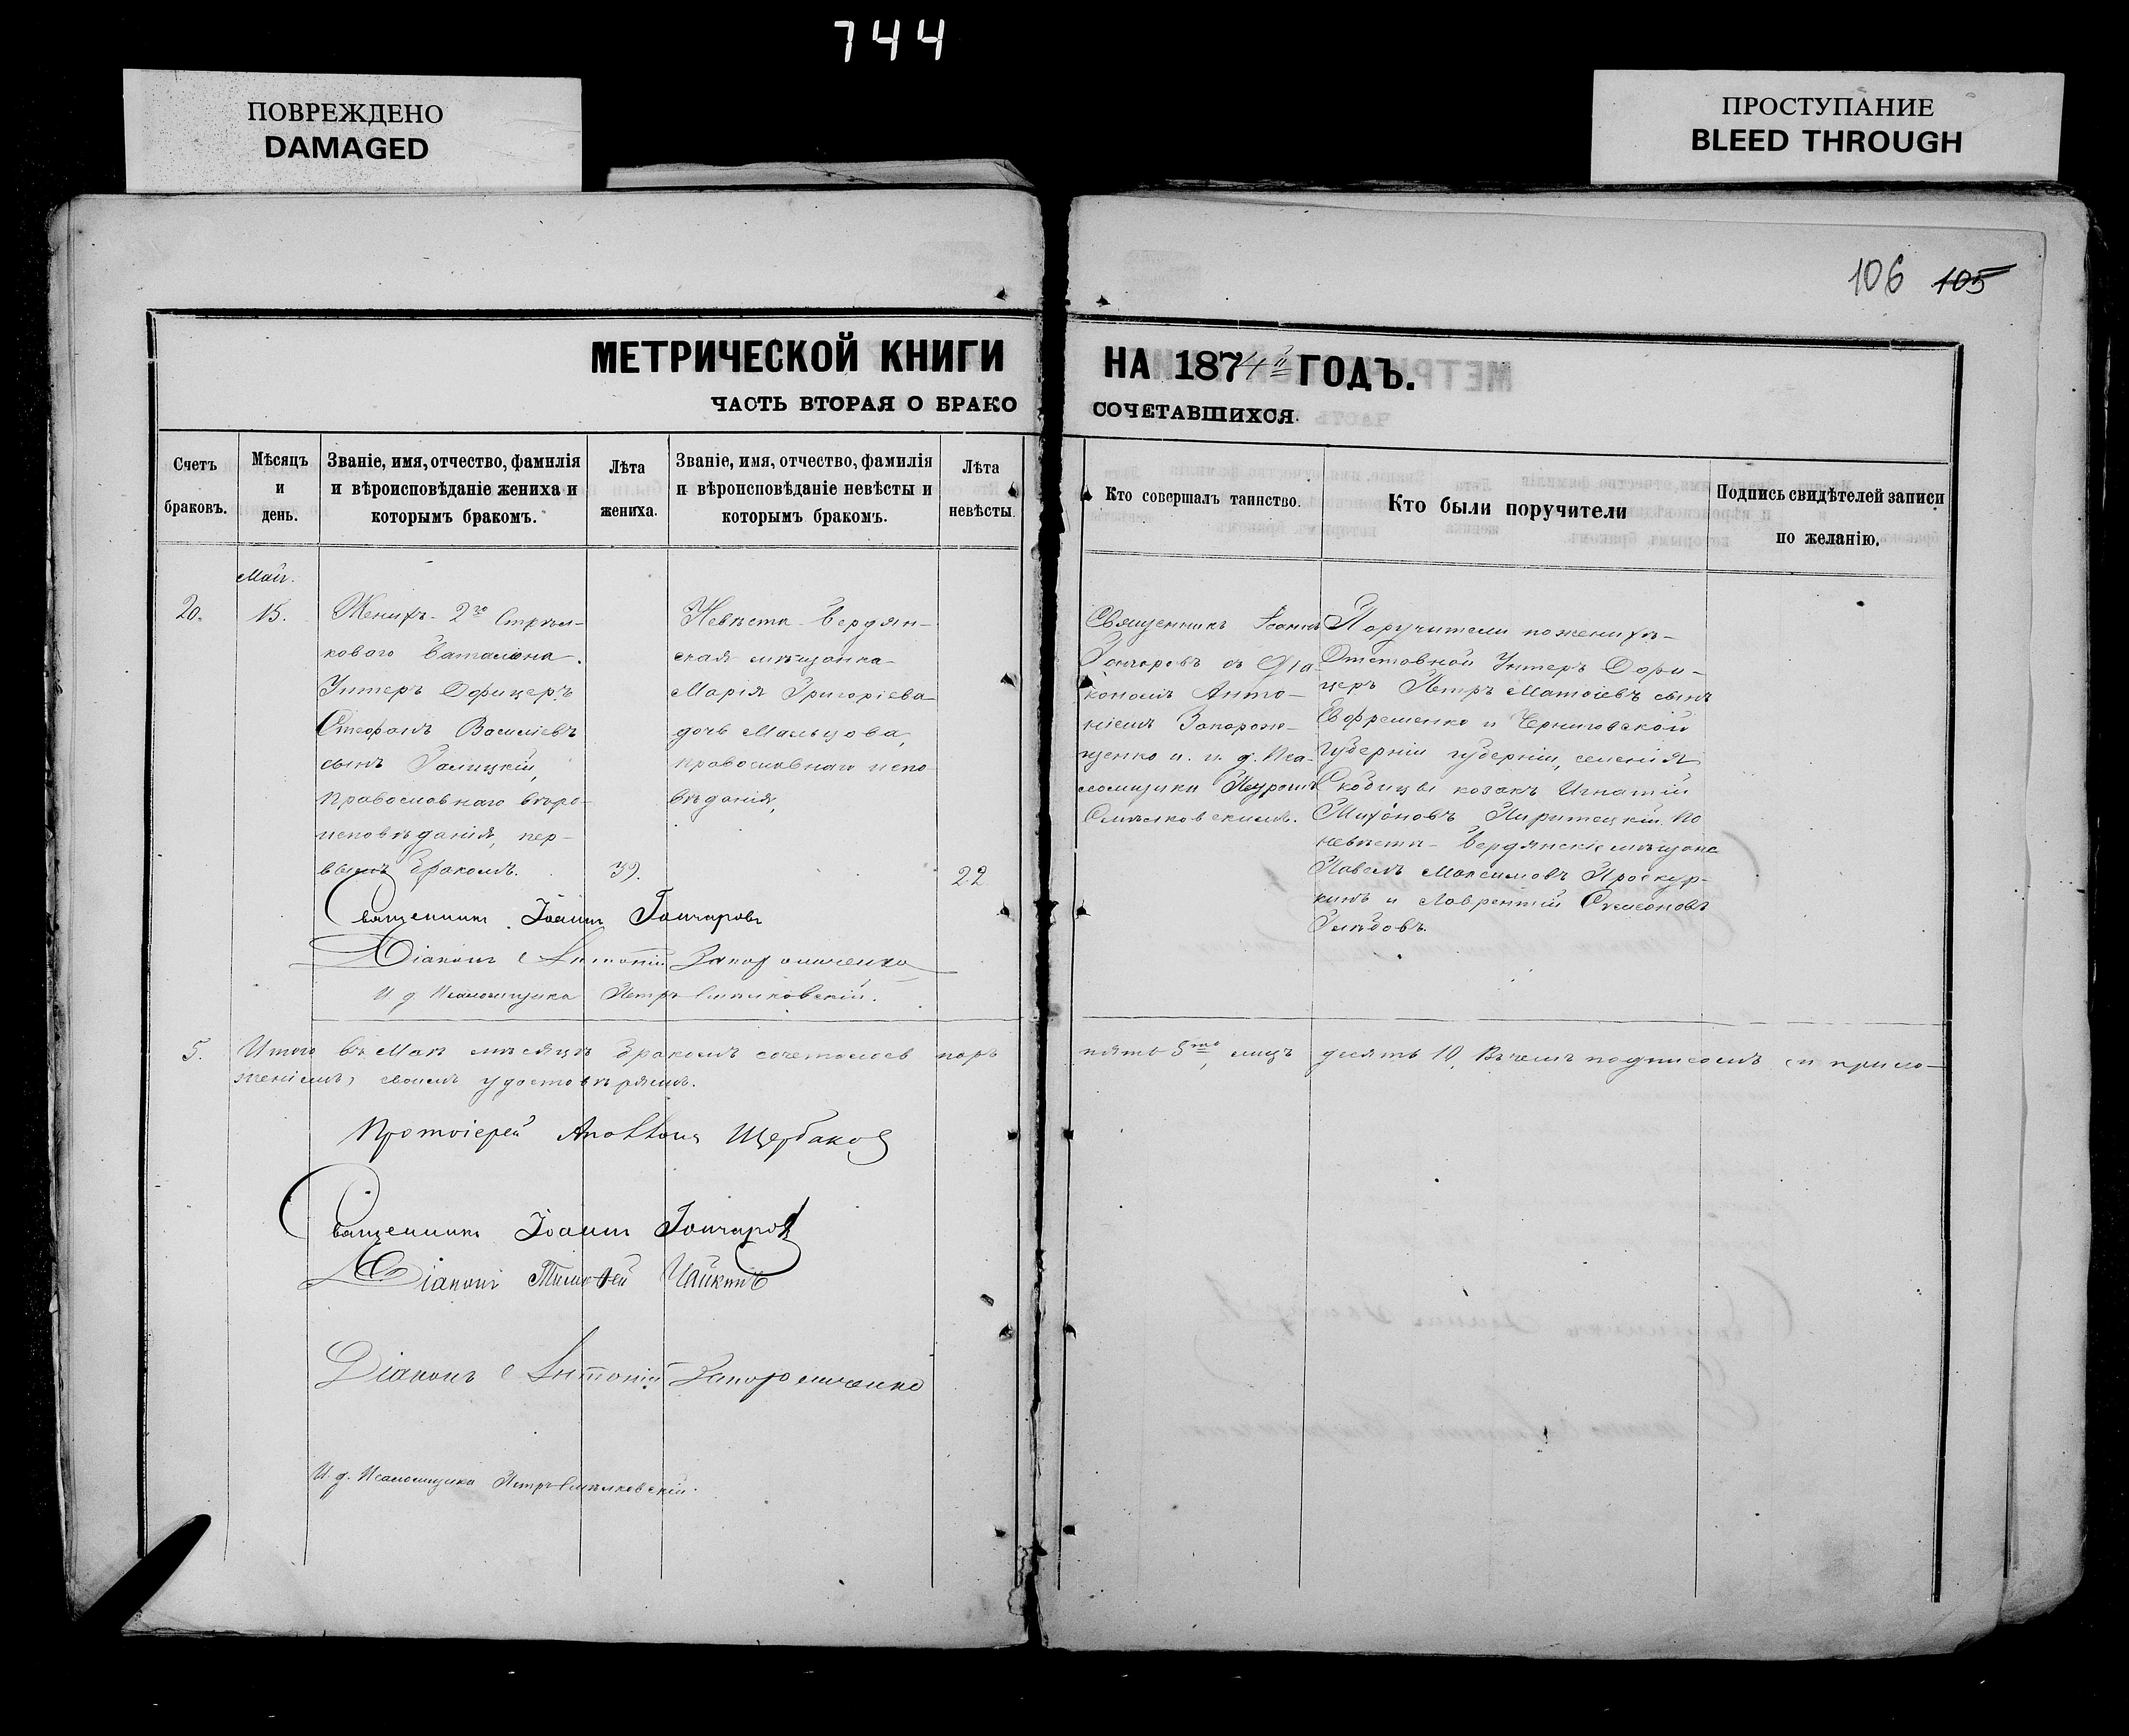 744
ПОВРЕЖДЕНО
DAMAGED
ПРОСТУПАНИЕ
BLEED THROUGH
106 105
МЕТРИЧЕСКОЙ КНИГИ НА 1874й ГОДЪ.
ЧАСТЬ ВТОРАЯ О БРАКО СОЧЕТАВШИХСЯ.
Счетъ
браковъ.
Мѣсяцъ
и
день.
Званіе, имя, отчество, фамилія
и вѣроисповѣданіе жениха и
которымъ бракомъ.
Лѣта
жениха.
Званіе, имя, отчество, фамилія
и вѣроисповѣданіе невѣсты и
которымъ бракомъ.
Лѣта
невѣсты.
Кто совершалъ таинство.
Кто были поручители
Подпись свидѣтелей записи
по желанію.
Май.
20.
15.
Женихъ- 2го Стрѣл-
коваго баталіона.
Унтеръ Офицеръ
Стефанъ Василіевъ
сынъ Галицкій,
православнаго вѣро-
исповѣданія, пер-
вымъ бракомъ.
39.
Невѣста- Бердян-
ская мѣщанка-
Марія Григоріева
дочь Мальцова,
православнаго испо-
вѣданія,
22
Священникъ Іоаннъ
Гончаровъ съ Діа-
кономъ Анто-
ніемъ Запорож-
ченко и. д. Пса-
ломщика Петромъ
Смѣлковскимъ.
Поручители по женихѣ-
Отставной Унтеръ Офи-
церъ Петръ Матѳіевъ сынъ
Ефременко и Черниговской
губерніи губерніи, селенія
козакъ Игнатій
Пирятецкій. По
невѣстѣ- Бердянскіе мѣщане
Павелъ Максимовъ Проскур-
кинъ и Лаврентій Симеоновъ
Глѣбовъ.
Священникъ Іоаннъ Гончаровъ
Діаконъ Антоній Запорожченко
И д. Псаломщика Петръ Смѣлковскій.
5. Итого въ Маѣ мѣсяцѣ бракомъ сочеталось паръ пять 5ть, лицъ десять 10. Въ чемъ подписомъ и прило-
женіемъ своимъ удостовѣряемъ.
Протоіерей Аполлонъ Щербаковъ
Священникъ Іоаннъ Гончаровъ
Діаконъ Тимофей Чайкинъ
Діаконъ Антоній Запорожченко
И. д. Псаломщика Петръ Смѣлковскій.